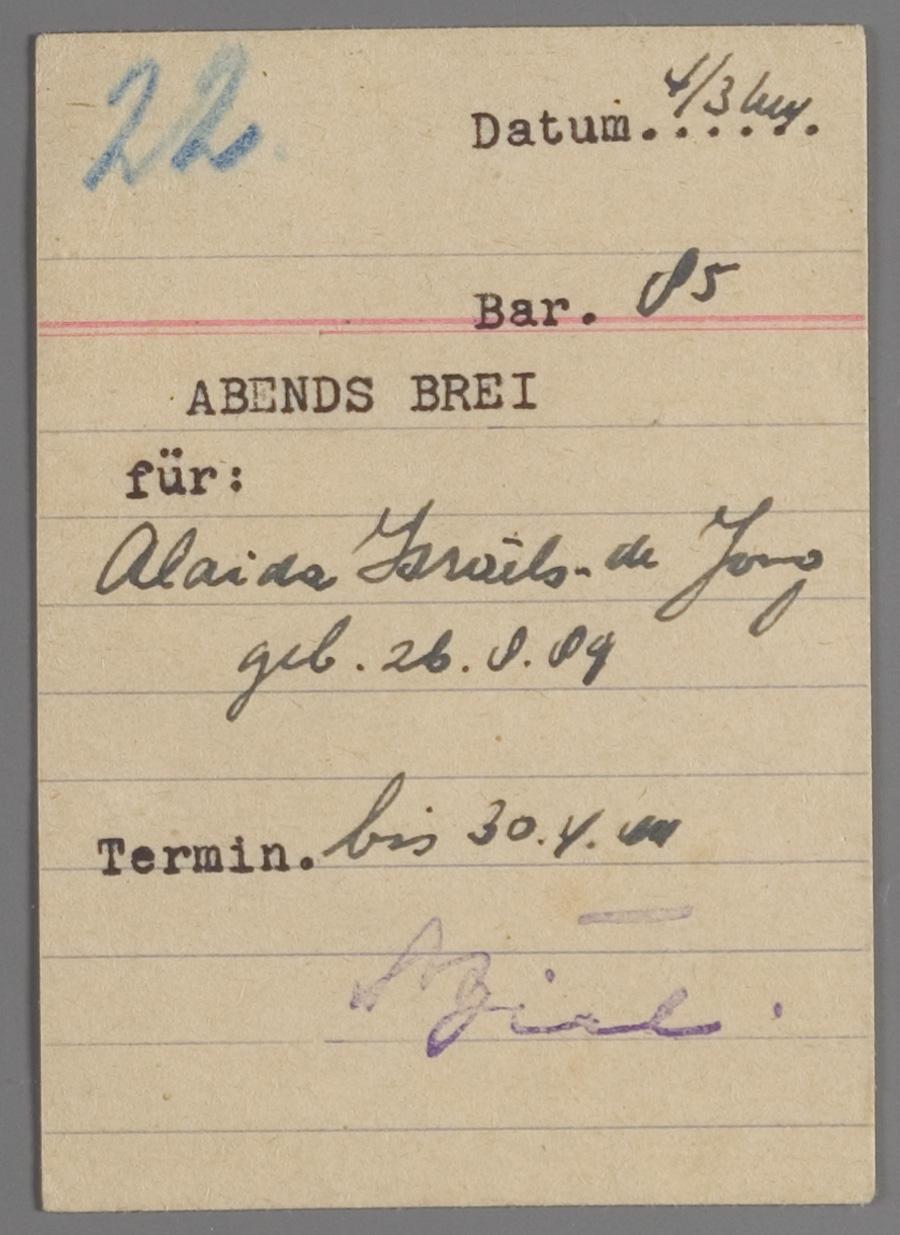 22.
Datum. 4/3 44
Bar. 85
ABENDS BREI
für:
Alaida Israëls-de Jong
geb. 26.8.89
Termin. bis 30.4.44